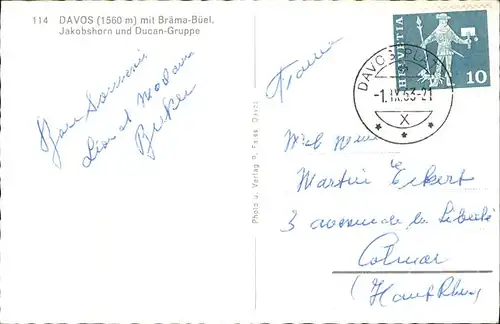 114 DAVOS (1560 m) mit Bräma-Büel,
Jakobshorn und Ducan-Gruppe
Bon Souvenir
Lion et Madame
France
HELVETIA
10
DAVOS PL
-1.IX.63-21
X
Photo u. Verlag P. Faiss, Davos
Martin Eckert
3 avenue de la Liberté
Colmar
(Haut Rhin)